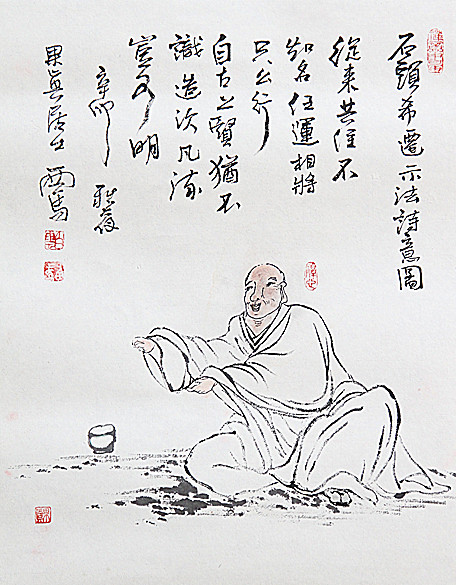 石頭希遷示法詩意圖
從来共住不
知名任運相將
只么行
自古上賢猶不
識造次凡流
豈可明
辛卯
果真居士